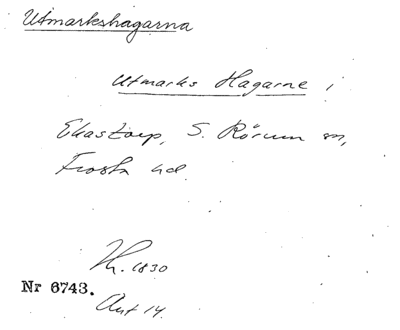 Utmarkshagarna
Utmarks Hagarne i
Ekastorp, S. Rörum sn,
Frosta hd.
1830
Nr 6743.
Akt 14.